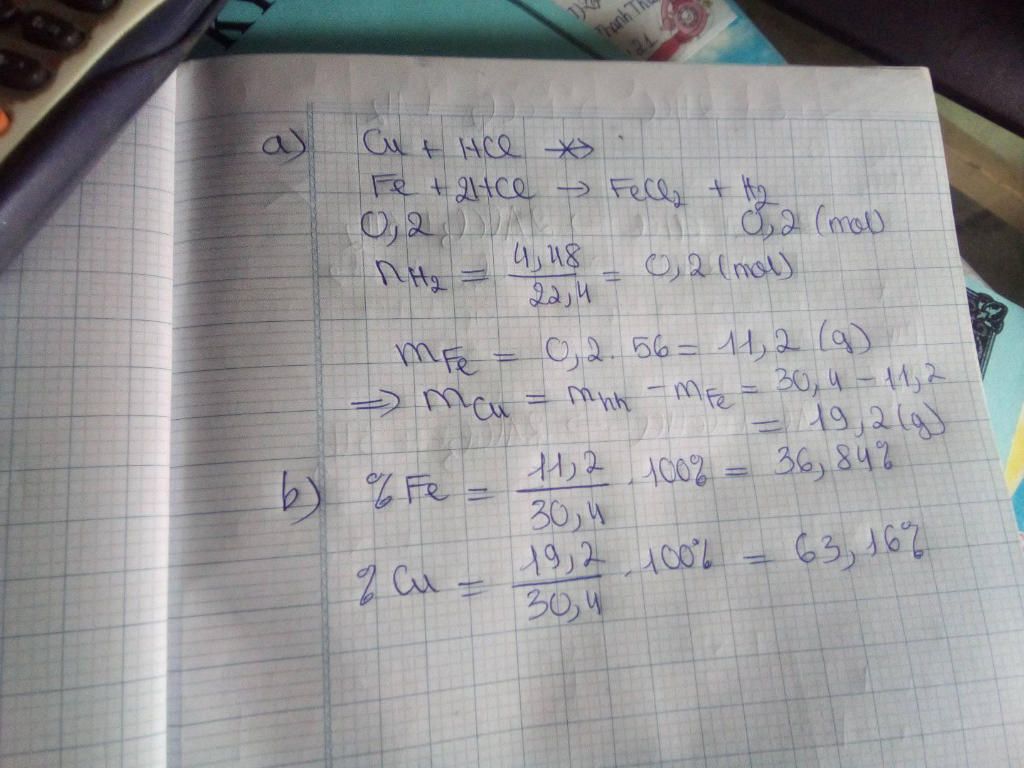 KY
Thanh Thu
21
a) Cu + HCl ↛
Fe + 2HCl → FeCl₂ + H₂
0,2 0,2 (mol)
nH₂ = 4,48/22,4 = 0,2 (mol)
mFe = 0,2 . 56 = 11,2 (g)
⇒ mCu = mhh - mFe = 30,4 - 11,2
= 19,2 (g)
b) % Fe = 11,2/30,4 . 100% = 36,84%
% Cu = 19,2/30,4 . 100% = 63,16%